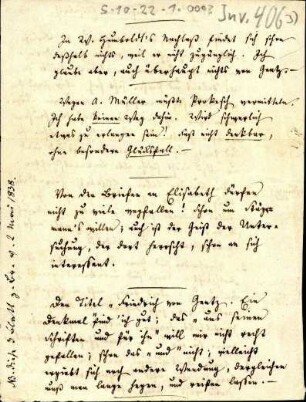 S-10-22-1.0093
Inv. 406 3)
In W. Humboldt's Nachlaß findet sich schon
deßhalb nichts, weil er nicht zugänglich. Ich
glaube aber, auch überhaupt nichts von Gentz.—
Wegen A. Müller müßte Prokesch vermitteln.
Ich habe keinen Weg dahin. Wird schwerlich
etwas zu erlangen sein! fast nicht denkbar,
ohne besondern Glücksfall.—
Von den Briefen an Elisabeth dürfen
nicht zu viele wegfallen! schon um
willen; auch ist der Geist der Unter-
suchung, der dort herrscht, schon an sich
interessant.
Den Titel „Friedrich von Gentz. Ein
Denkmal" find' ich gut; das „aus seinen
Schriften und für ihn" will mir nicht recht
gefallen; schon das „und" nicht; vielleicht
ergiebt sich noch andre Wendung, dergleichen
muß man lange hegen, und reifen lassen.—
2 Mai 1838.